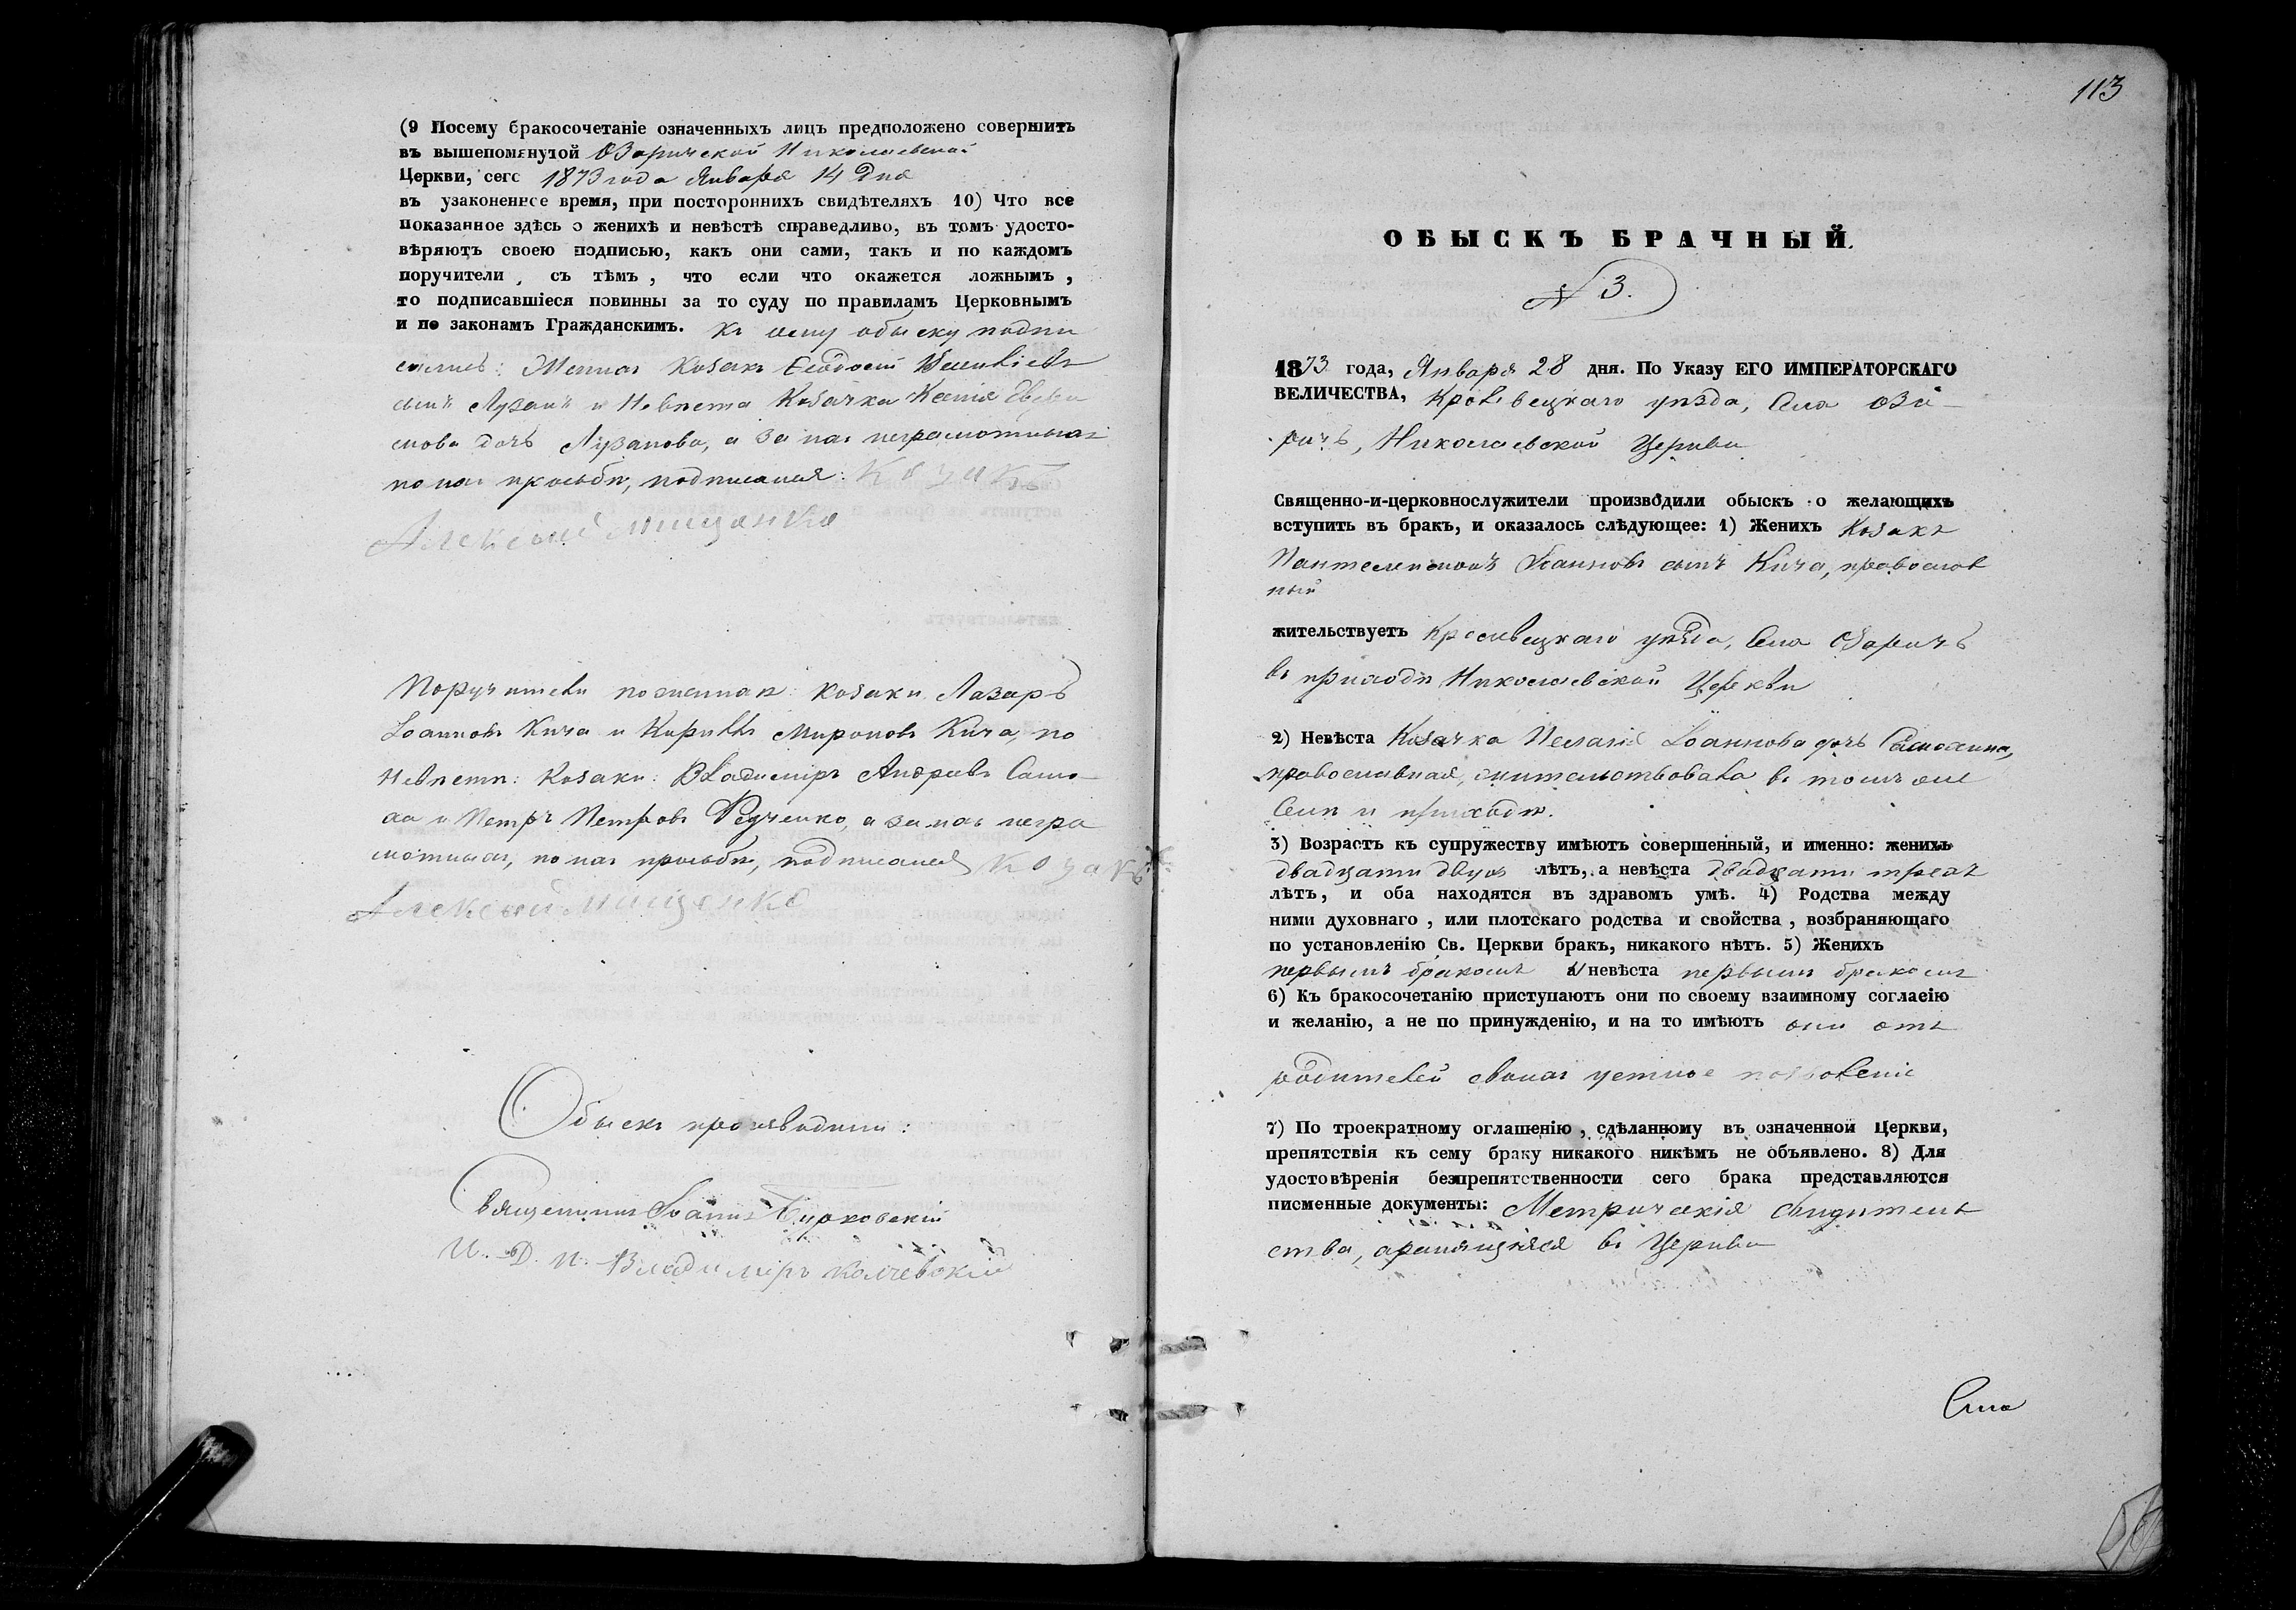 (9 Посему бракосочетаніе означенныхъ лицъ предположено совершить
въ вышепомянутой Озаричской Николаевской
Церкви, сего 1873 года Января 14 дня
въ узаконенное время, при постороннихъ свидѣтеляхъ 10) Что все
показанное здѣсь о женихѣ и невѣстѣ справедливо, въ томъ удосто-
вѣряютъ своею подписью, какъ они сами, такъ и по каждомъ
поручители, съ тѣмъ, что если что окажется ложнымъ,
то подписавшіеся повинны за то суду по правиламъ Церковнымъ
и по законамъ Гражданскимъ. Къ сему обыску подпи
сались: Женихъ Козакъ Ѳеодосій
сынъ Лузанъ и Невѣста Козачка Ксенія
дочь Лузанова, а за нихъ неграмотныхъ
по ихъ просьбѣ, подписался: Козакъ
Алексѣй Мищенко
Поручители по женихѣ: козаки Лазарь
Іоанновъ Кича и Кириллъ Мироновъ Кича, по
Невѣстѣ: Козаки: Владиміръ Андреевъ Само-
ха и Петръ Петровъ Федченко, а за нихъ негра
мотныхъ, по ихъ просьбѣ, подписался Козакъ
Алексѣй Мищенко
Обыскъ производили:
Священникъ Іоаннъ
И. Д. П. Владиміръ
113
ОБЫСКЪ БРАЧНЫЙ.
№ 3.
1873 года, Января 28 дня. По Указу ЕГО ИМПЕРАТОРСКАГО
ВЕЛИЧЕСТВА, Кролевецкаго уѣзда, Села Оза-
ричъ, Николаевской Церкви
Священно-и-церковнослужители производили обыскъ о желающихъ
вступить въ бракъ, и оказалось слѣдующее: 1) Женихъ Козакъ
Пантелеимонъ Іоанновъ сынъ Кича, православ
ный
жительствуетъ Кролевецкаго уѣзда, Села Озаричъ
въ приходѣ Николаевской Церкви
2) Невѣста Козачка Пелагія Іоаннова дочь Самохина,
православная, жительствовала въ томъ же
Селѣ и приходѣ.
3) Возрастъ къ супружеству имѣютъ совершенный, и именно: женихъ
двадцати двухъ лѣтъ, а невѣста двадцати трехъ
лѣтъ, и оба находятся въ здравомъ умѣ. 4) Родства между
ними духовнаго, или плотскаго родства и свойства, возбраняющаго
по установленію Св. Церкви бракъ, никакого нѣтъ. 5) Женихъ
первымъ бракомъ и невѣста первымъ бракомъ
6) Къ бракосочетанію приступаютъ они по своему взаимному согласію
и желанію, а не по принужденію, и на то имѣютъ они отъ
родителей своихъ устное позволеніе
7) По троекратному оглашенію, сдѣланному въ означенной Церкви,
препятствія къ сему браку никакого никѣмъ не объявлено. 8) Для
удостовѣренія безпрепятственности сего брака представляются
писменные документы: Метрическія свидѣтель
ства, хранящіяся въ Церкви